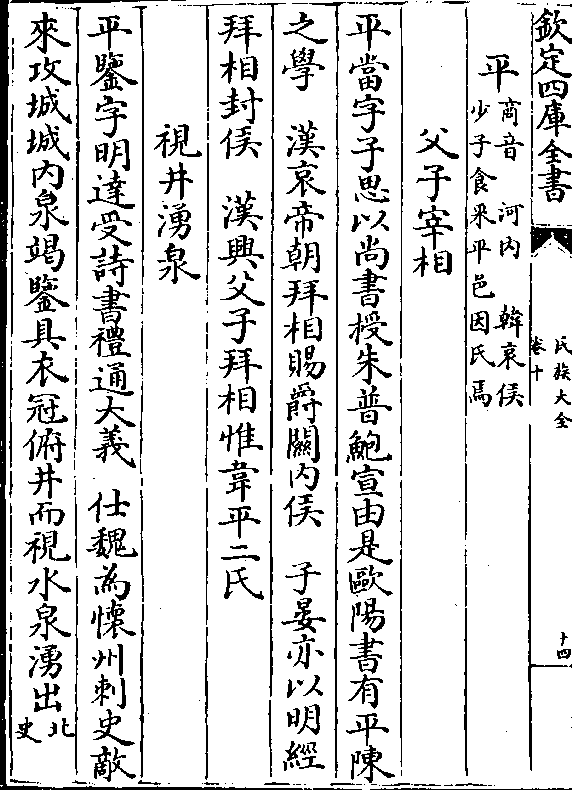 欽定四庫全書
氏族大全
卷十
十四
平
商音　河内　韓哀侯
少子食采平邑因氏焉
父子宰相
平當字子思以尚書授朱普鮑宣由是歐陽書有平陳
之學　漢哀帝朝拜相賜爵關内侯　子晏亦以明經
拜相封侯　漢興父子拜相惟韋平二氏
視井湧泉
平鑒字明達受詩書禮通大義　仕魏為懷州刺史敵
來攻城城内泉竭鑒具衣冠俯井而視水泉湧出北史